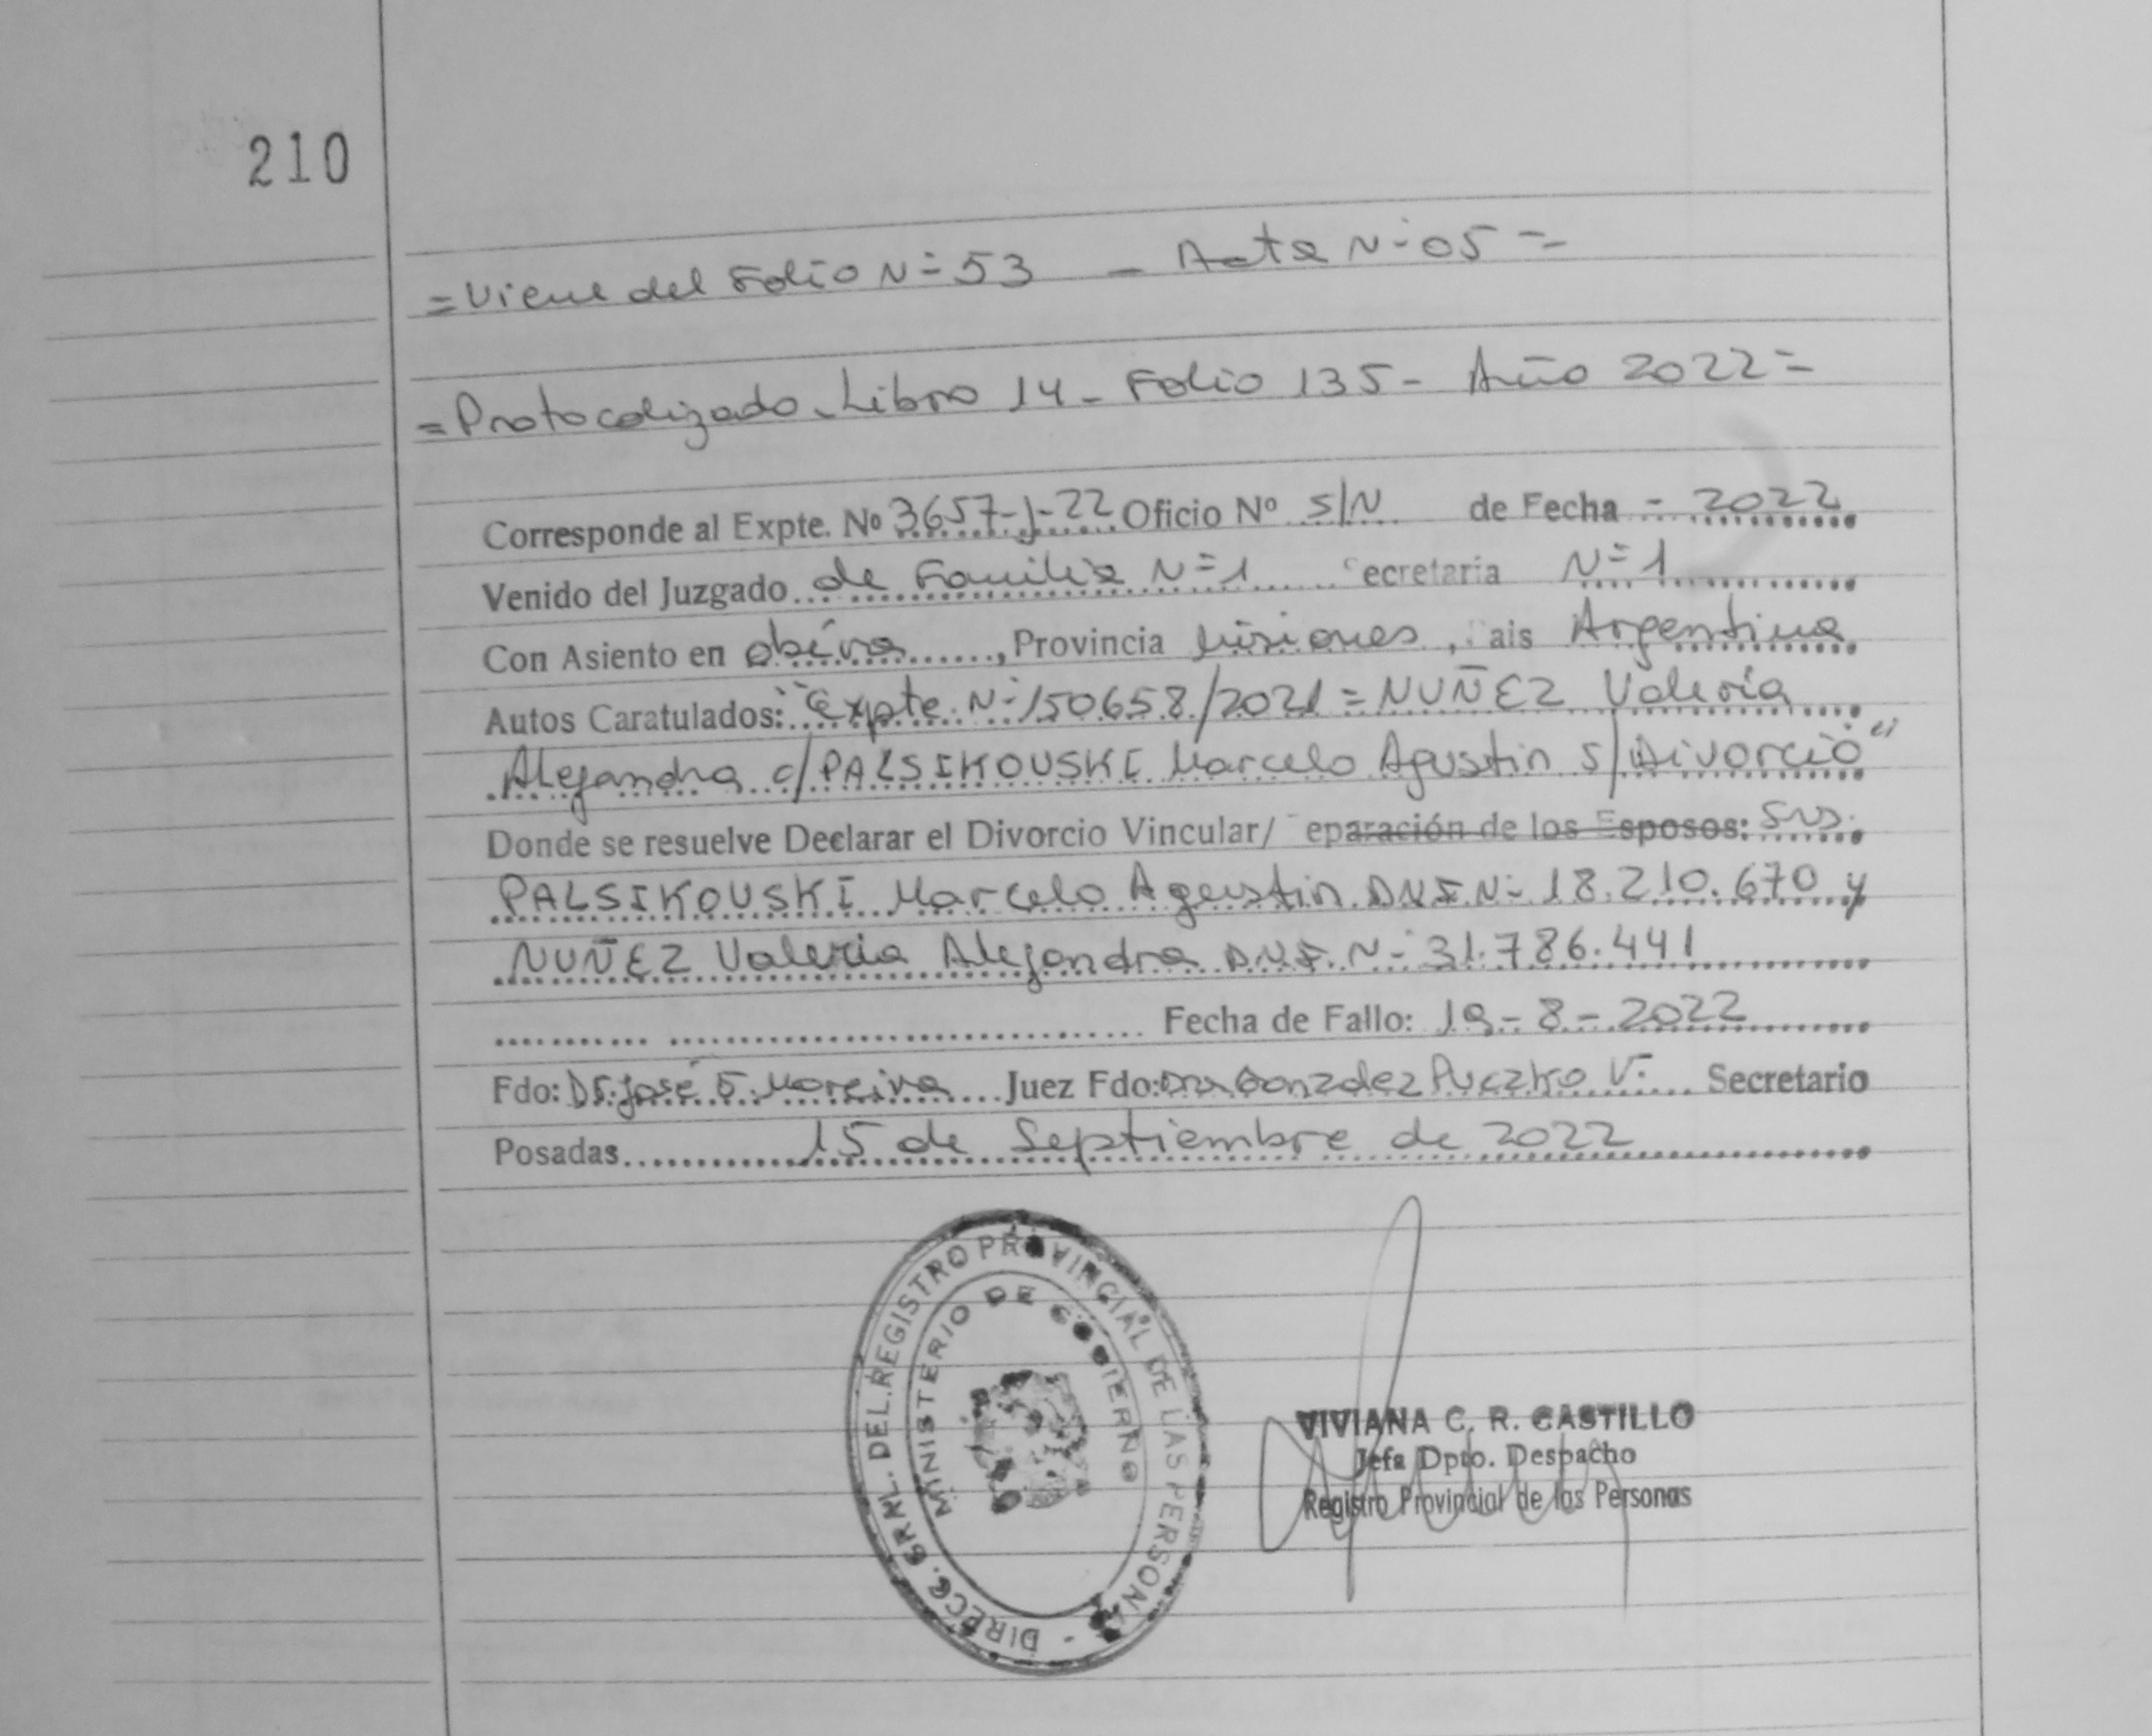 210
=Viene del Folio Nº 53 - Acta Nº 05=
=Protocolizado-Libro 14-Folio 135-Año 2022=
Corresponde al Expte. Nº 3657-J-22 Oficio Nº S/N de Fecha - 2022
Venido del Juzgado de Familia Nº 1 Secretaria Nº 1
Con Asiento en Oberá, Provincia Misiones, Pais Argentina
Autos Caratulados: "Expte Nº 150658/2021=NUÑEZ Valeria
Alejandra c/PALSIKOUSKI Marcelo Agustin s/Divorcio"
Donde se resuelve Declarar el Divorcio Vincular/ Separación de los Esposos: Sres.
PALSIKOUSKI Marcelo Agustin D.N.I. Nº 18.210.670 y
NUÑEZ Valeria Alejandra D.N.I. Nº 31.786.441
Fecha de Fallo: 19-8-2022
Fdo: Dr. José G. Moreira Juez Fdo: Dra Gonzalez Puczko V. Secretario
Posadas 15 de Septiembre de 2022
DIRECC. GRAL. DEL REGISTRO PROVINCIAL DE LAS PERSONAS -
MINISTERIO DE GOBIERNO
VIVIANA C. R. CASTILLO
Jefa Dpto. Despacho
Registro Provincial de las Personas